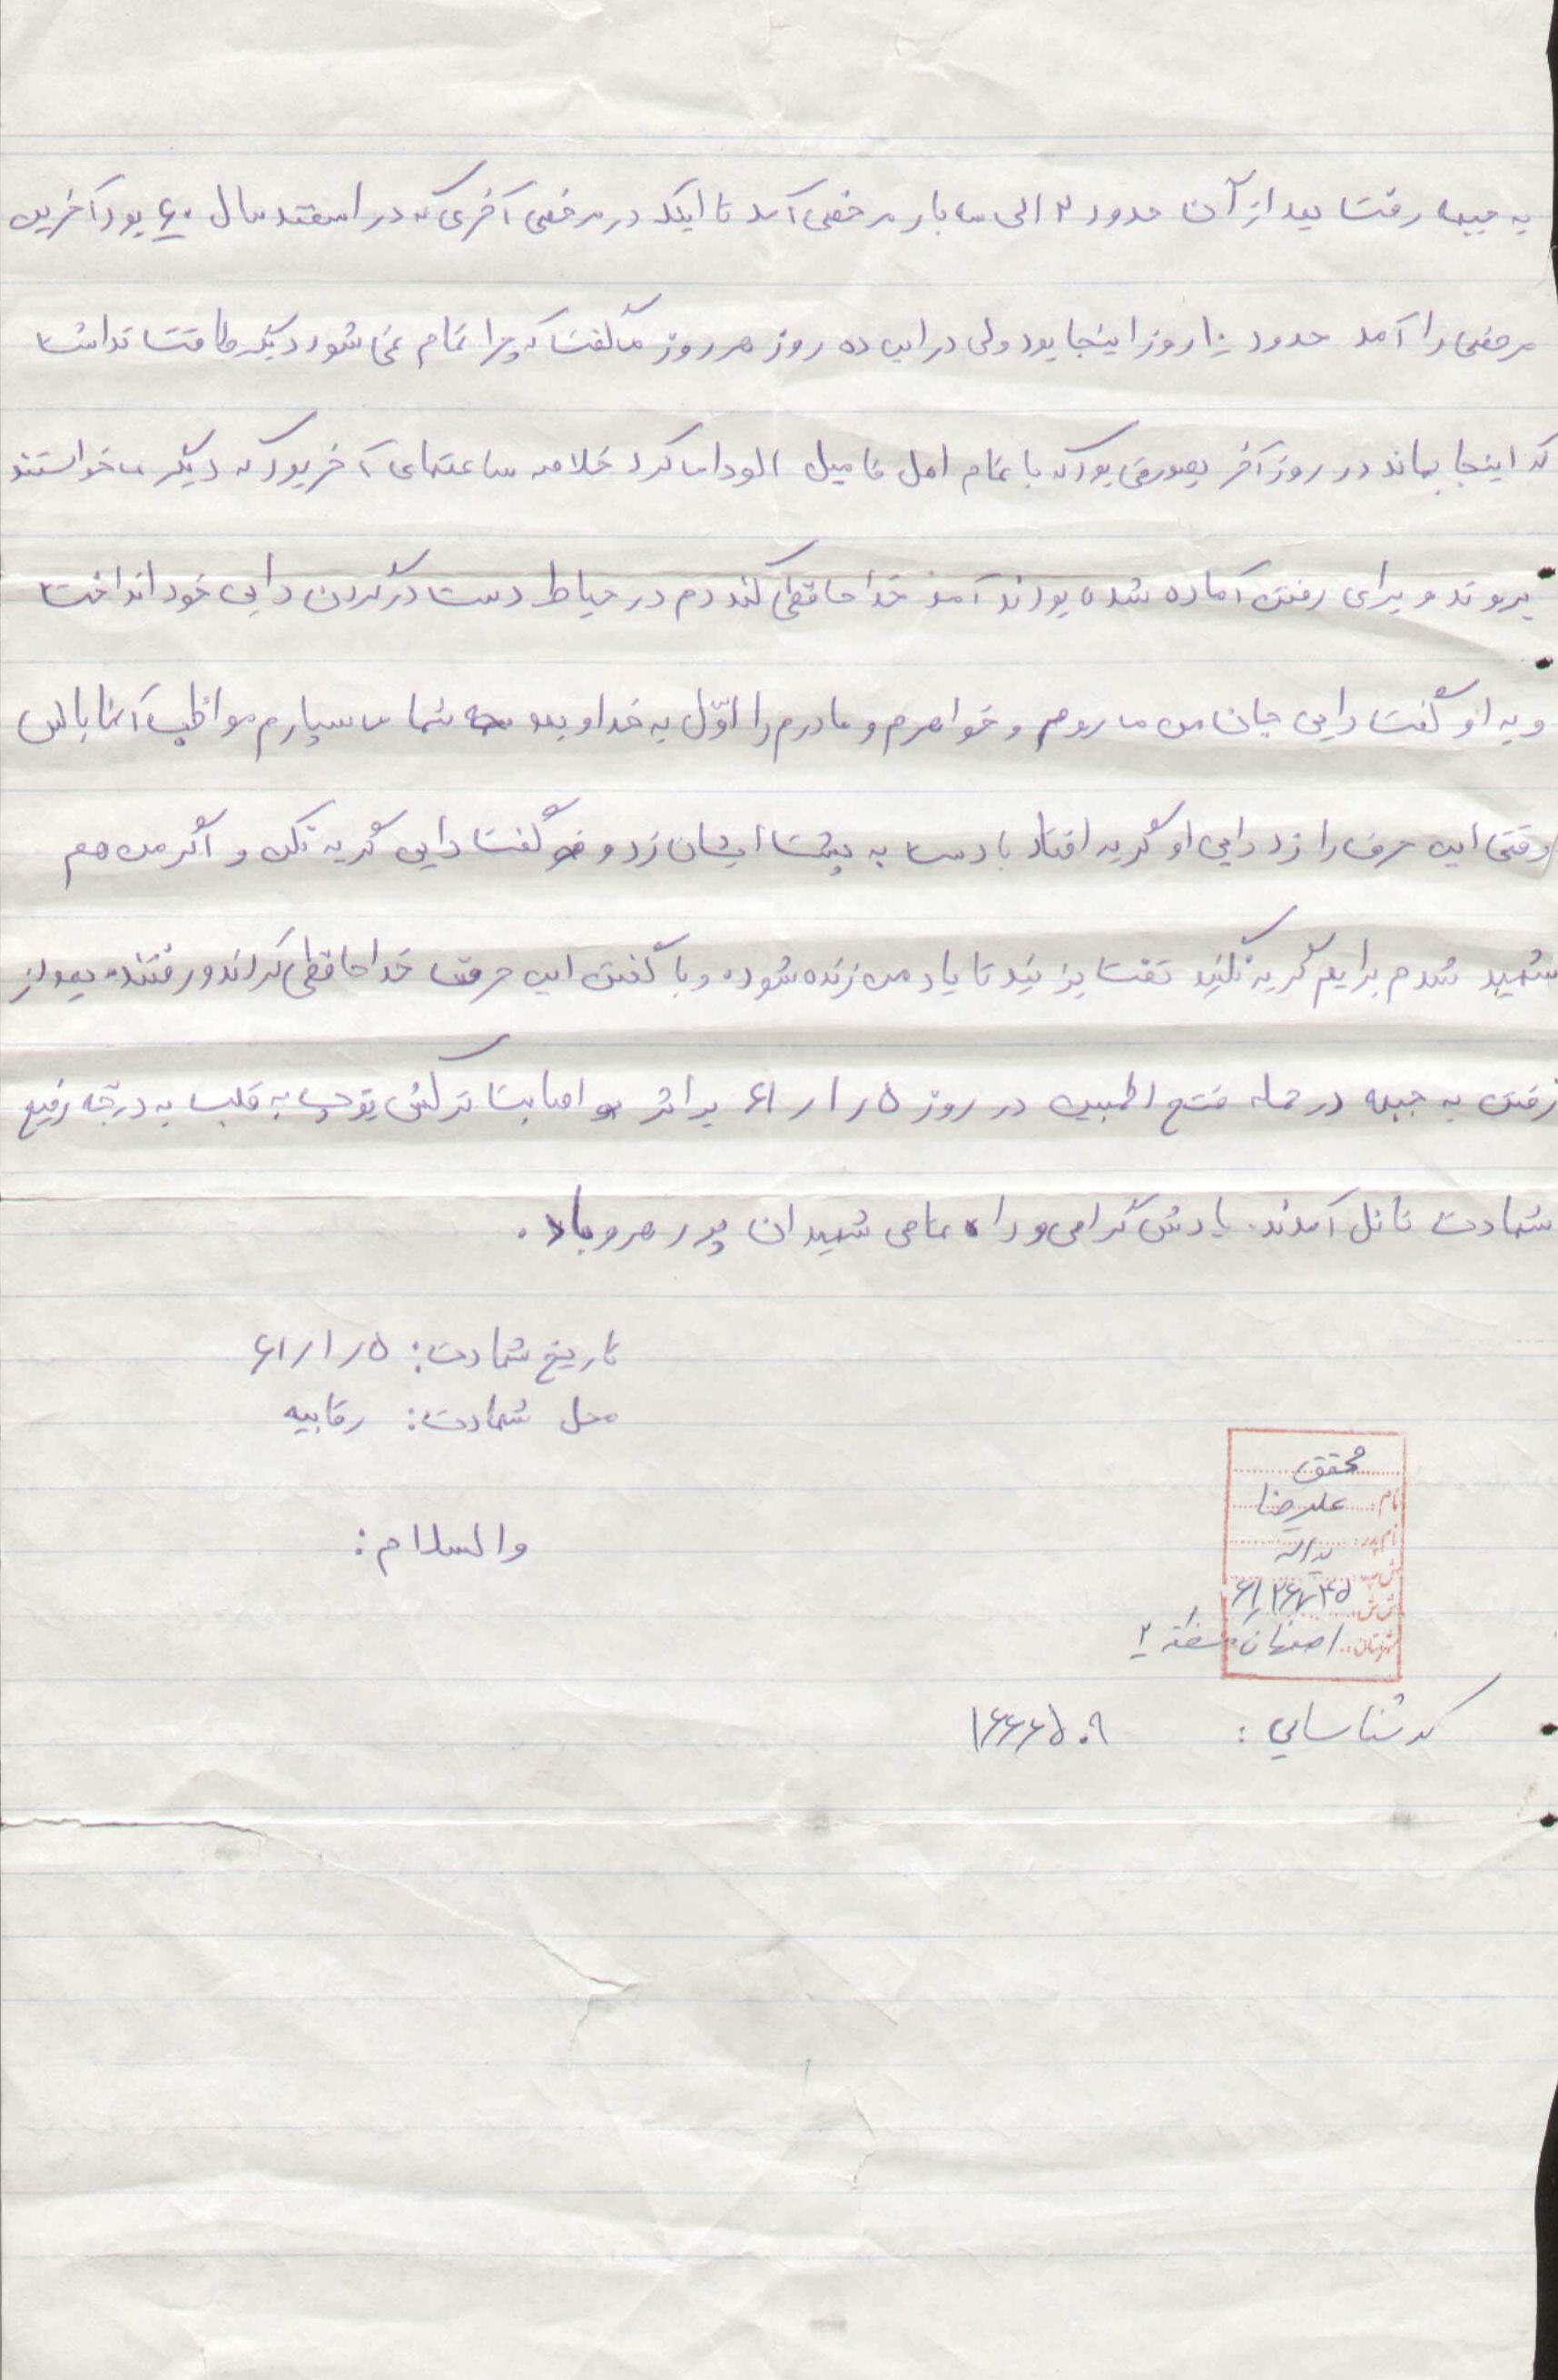 به جبهه رفت بعد از آن حدود ۲ الی سه بار مرخصی آمد تا اینکه در مرخصی آخری که در اسفند سال ۶۰ بود آخرین
مرخصی را آمد حدود ۱۰ روز اینجا بود ولی در این ده روز هر روز می گفت که چرا تمام نمی شود دیگر طاقت نداشت
که اینجا بماند در روز آخر بصورتی بود که با تمام اهل فامیل الوداع کرد خلاصه ساعتهای آخر بود که دیگر می خواستند
بروند و برای رفتن آماده شده بودند آمد خداحافظی کند دم در حیاط دست در گردن دایی خود انداخت
و به او گفت دایی جان من می روم و خواهرم و مادرم را اوّل به خدا و بعد به شما می سپارم مواظب آنها باش
وقتی این حرف را زد دایی او گریه افتاد با دست به پشت ایشان زد و گفت دایی گریه نکن و اگر من هم
شهید شدم برایم گریه نکنید تفت بزنید تا یاد من زنده شود. و با گفتن این حرف خداحافظی کردند و رفتند. بعد از
رفتن به جبهه در حمله فتح المبین در روز ۵ ر ۱ ر ۶۱ بر اثر اصابت ترکش توپ به قلب به درجه رفیع
شهادت نائل آمدند. یادش گرامی و راه تمامی شهیدان پر رهرو باد.
تاریخ شهادت: ۵ ر ۱ ر ۶۱
محل شهادت: رقابیه
محقق
نام: علیرضا
نام پدر: یداله
ش پ
ش ش
شهرستان: اصفهان منطقه ۲
والسلام:
کد شناسایی: ۱۶۶۶۵۰۹